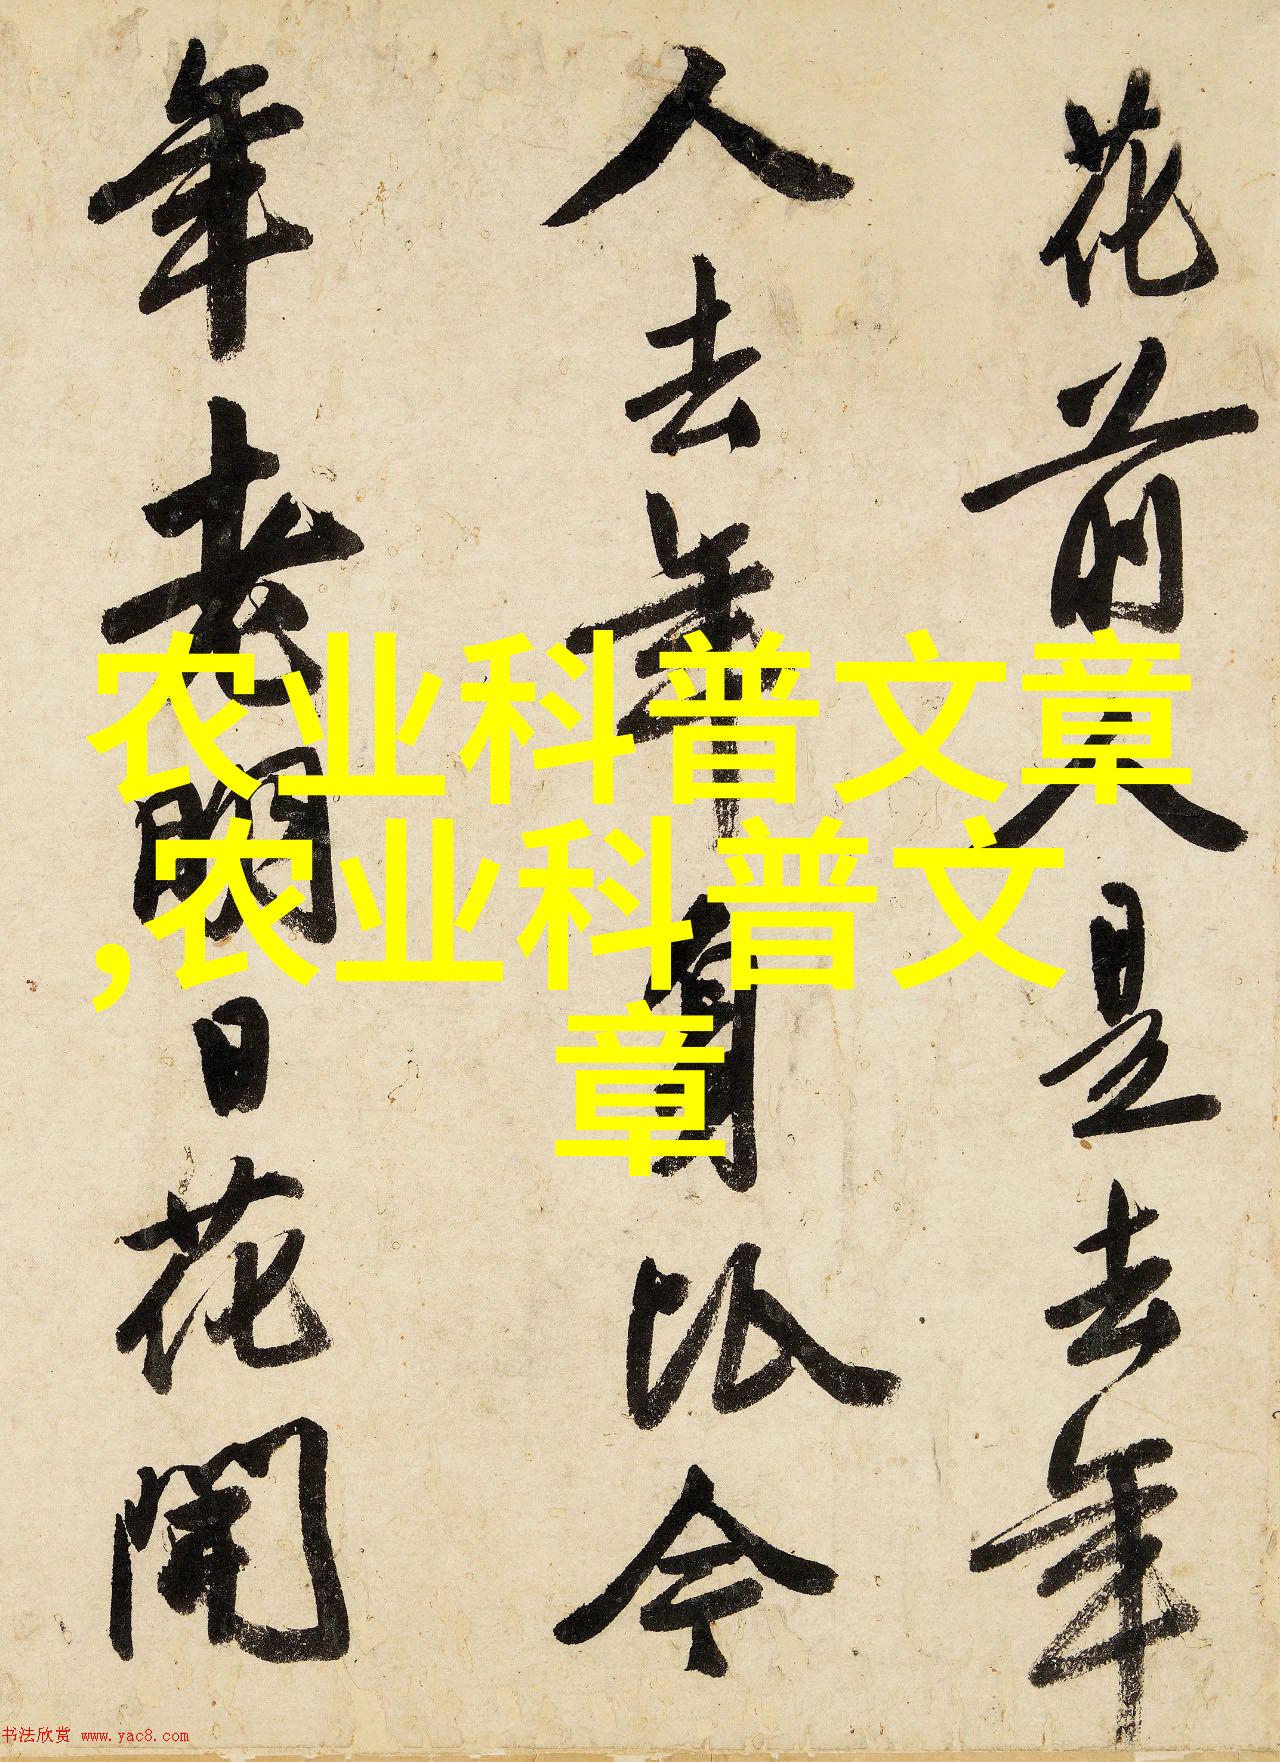 花前人是去年
人去年比今
年老日花開
农业科普文章
,农业科普文
章
书法欣赏 www.yac8.com